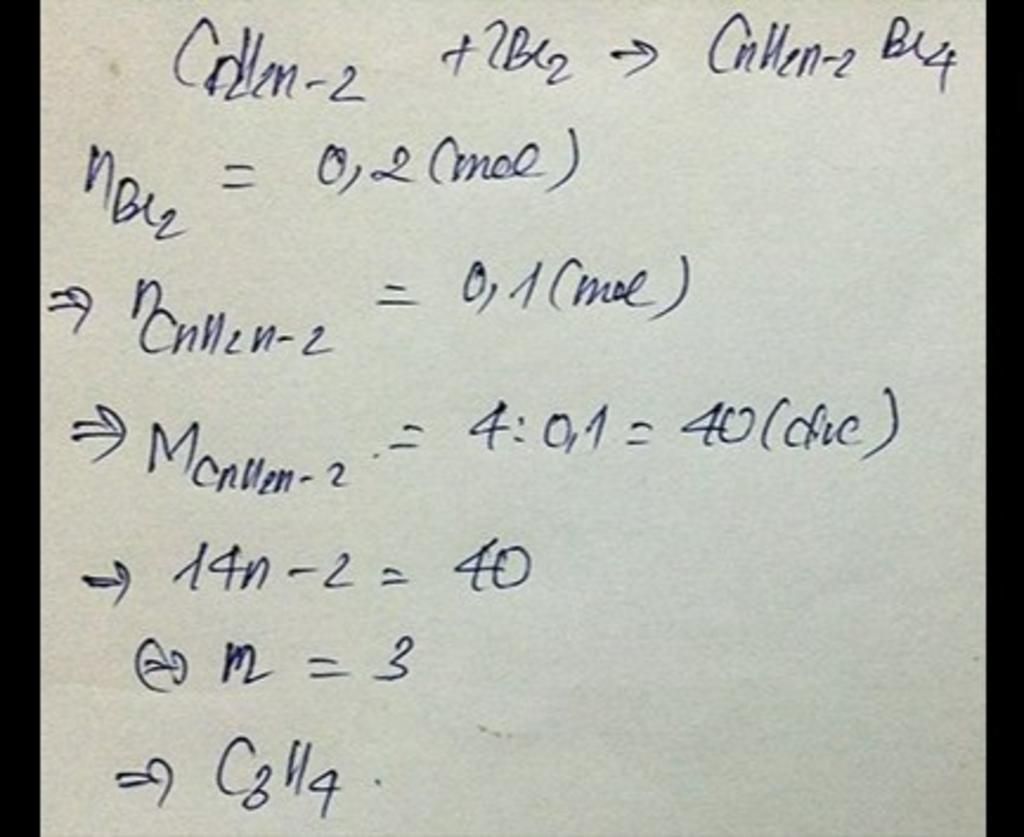 CnH2n-2 +2Br2 → CnH2n-2 Br4
nBr2 = 0,2 (mol)
⇒ nCnH2n-2 = 0,1 (mol)
⇒ MCnH2n-2 = 4:0,1 = 40 (đvc)
⇒ 14n - 2 = 40
⇔ n = 3
⇒ C3H4.